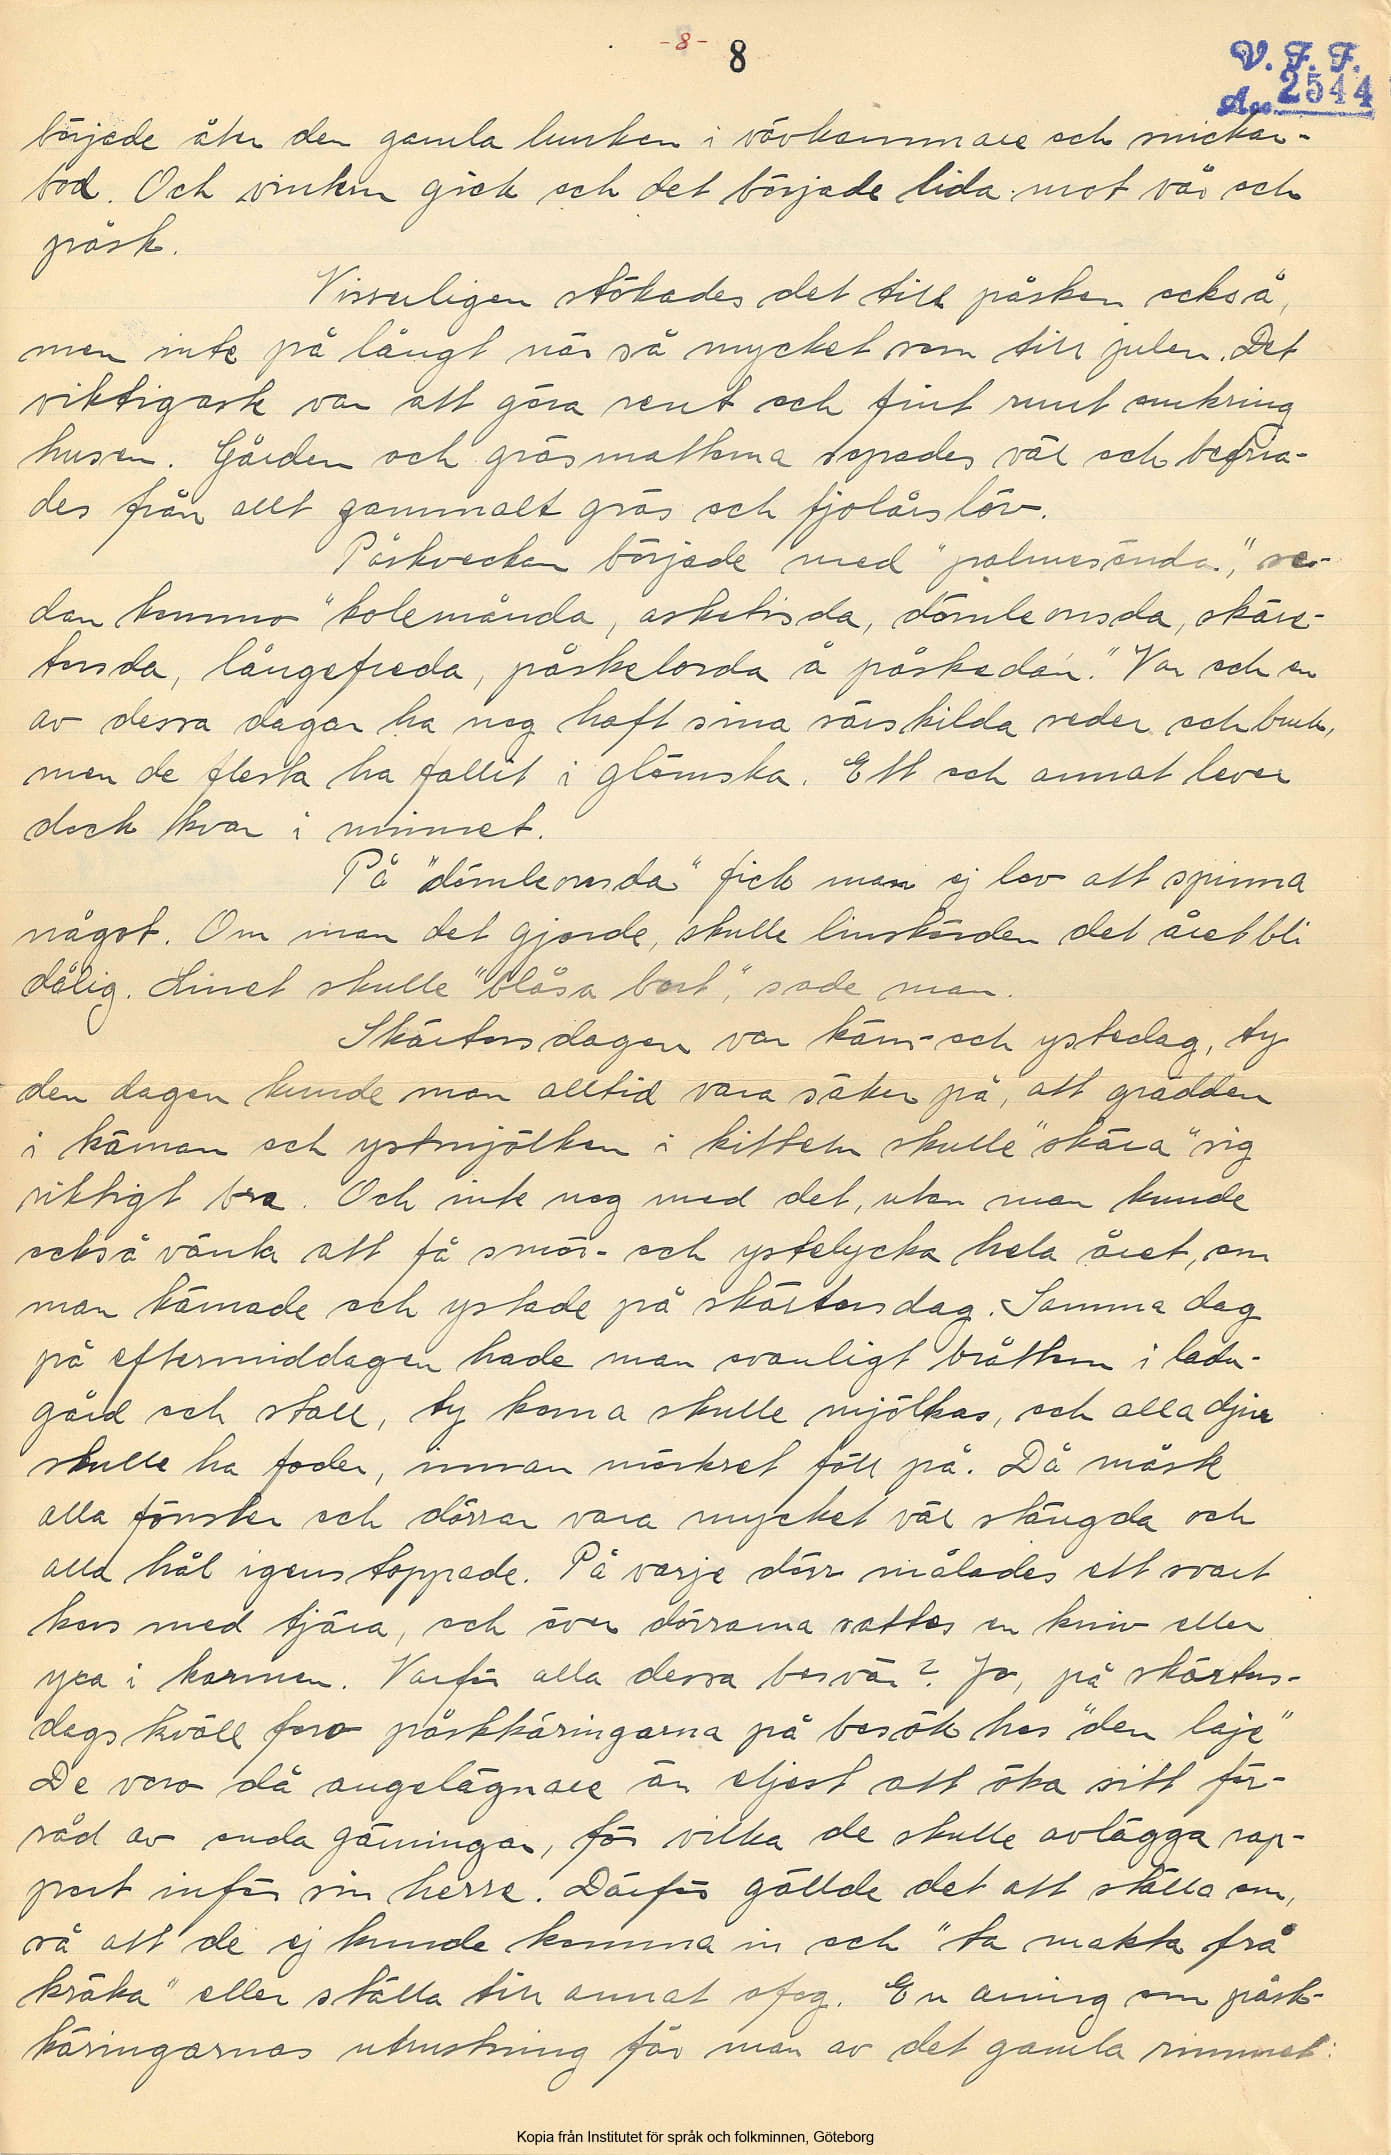 -8- 8
V. F. F.
Acc 2544
började åter den gamla lunken i vävkammare och snickar-
bod. Och vintern gick och det började lida mot vår och
påsk.
Visserligen stökades det till påsken också,
men inte på långt när så mycket som till julen. Det
viktigaste var att göra rent och fint runt omkring
husen. Gården och gräsmattorna sopades väl och befria-
des från allt gammalt gräs och fjolårslöv.
Påskveckan började med "palmesönda", se-
dan kommo "kolemånda, asketisda, dömleonsda, skäre-
torsda, långefreda, påskelörda å påskedan." Var och en
av dessa dagar ha nog haft sina särskilda seder och bruk,
men de flesta ha fallit i glömska. Ett och annat lever
dock kvar i minnet.
På "dömleonsda" fick man ej lov att spinna
något. Om man det gjorde, skulle linskörden det året bli
dålig. Linet skulle "blåsa bort", sade man.
Skärtorsdagen var kärn- och ystedag, ty
den dagen kunde man alltid vara säker på, att grädden
i kärnan och ystmjölken i kitteln skulle "skära" sig
riktigt bra. Och inte nog med det, utan man kunde
också vänta att få smör- och ystelycka hela året, om
man kärnade och ystade på skärtorsdag. Samma dag
på eftermiddagen hade man ovanligt bråttom i ladu-
gård och stall, ty korna skulle mjölkas, och alla djur
skulle ha foder, innan mörkret föll på. Då måste
alla fönster och dörrar vara mycket väl stängda och
alla hål igenstoppade. På varje dörr målades ett svart
kors med tjära, och över dörrarna sattes en kniv eller
yxa i karmen. Varför alla dessa besvär? Jo, på skärtors-
dagskväll foro påskkäringarna på besök hos "den laje"
De voro då angelägnare än eljest att öka sitt för-
råd av onda gärningar, för vilka de skulle avlägga rap-
port inför sin herre. Därför gällde det att ställa om,
så att de ej kunde komma in och "ta makta frå
kräka" eller ställa till annat ofog. En aning om påsk-
käringarnas utrustning får man av det gamla rimmet:
Kopia från Institutet för språk och folkminnen, Göteborg